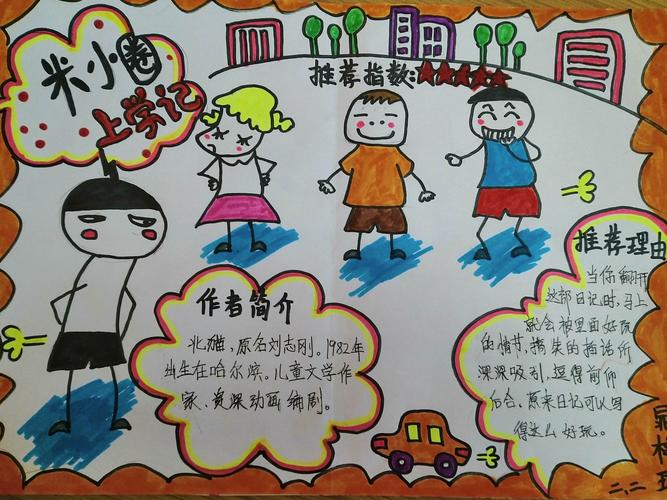 米小圈
上学记
推荐指数:★★★★★
作者简介
北猫,原名刘志刚。1982年
出生在哈尔滨。儿童文学作
家、资深动画编剧。
推荐理由
当你翻开
这部日记时,马上
就会被里面好玩
的情节,搞笑的插话所
深深吸引,逗得前仰
后合、原来日记可以写
得这么好玩。
二.二